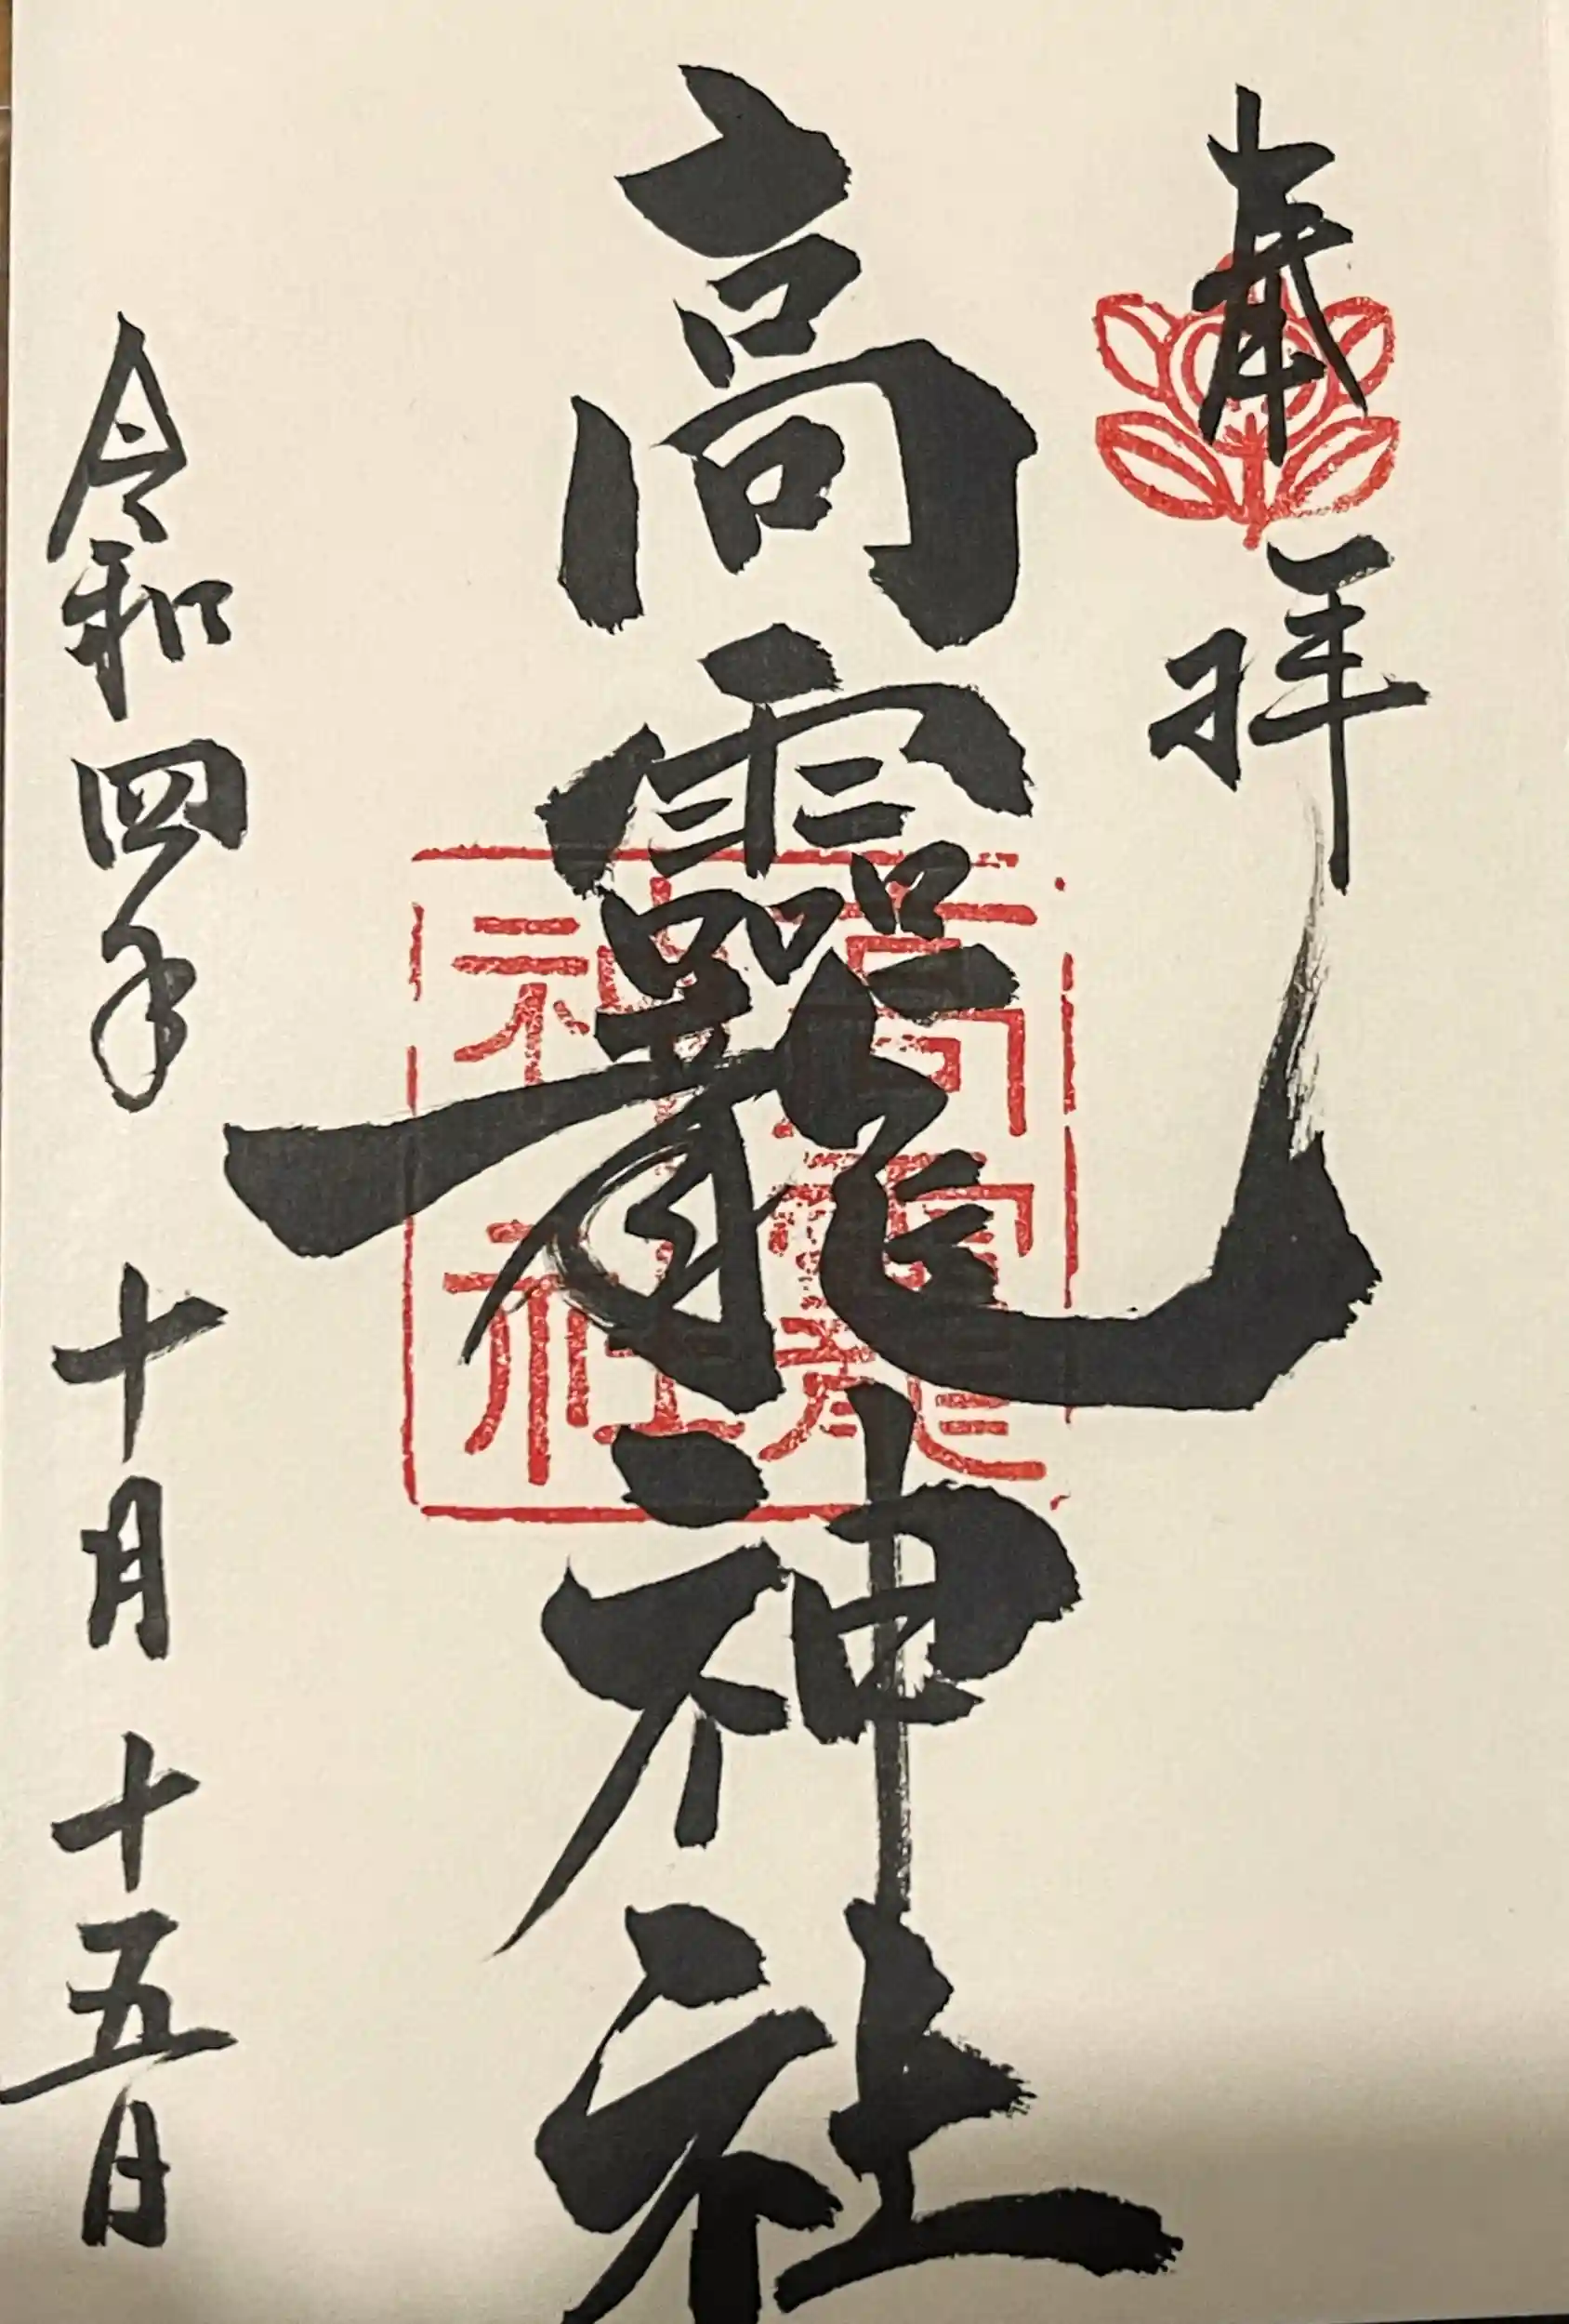 奉拝
高龗神社
高龗
神社
令和四年 十月 十五日